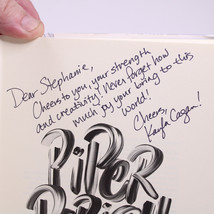 Dear Stephanie,
Cheers to you, your strength
and creativity! Never forget how
much joy your bring to this
world!
Cheers,
Kayla Cagan!
PIPER
PERISH